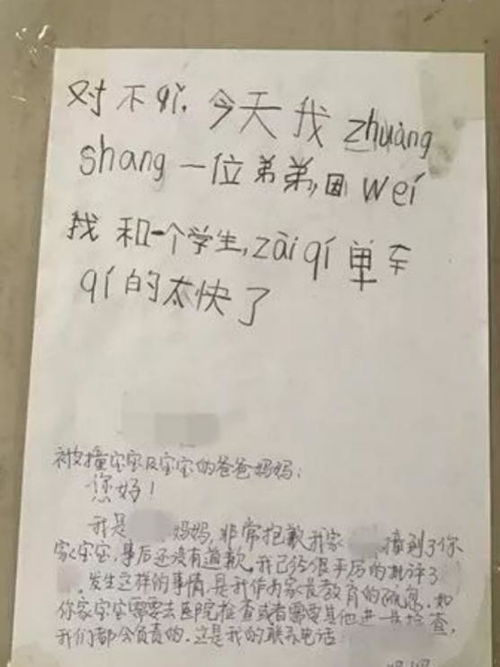 对不qǐ，今天我zhuàng
shang一位弟弟，因wéi
我和一个学生，zài qí单车
qí的太快了
被撞宝宝及宝宝的爸爸妈妈：
您好！
我是 妈妈，非常抱歉我家 撞到了你
家宝宝，事后还没有道歉，我已经很严厉的批评了
发生这样的事情，是我作为家长教育的疏忽，如
你家宝宝需要去医院检查或者需要其他进一步检查，
我们都会负责的，这是我的联系电话
妈妈